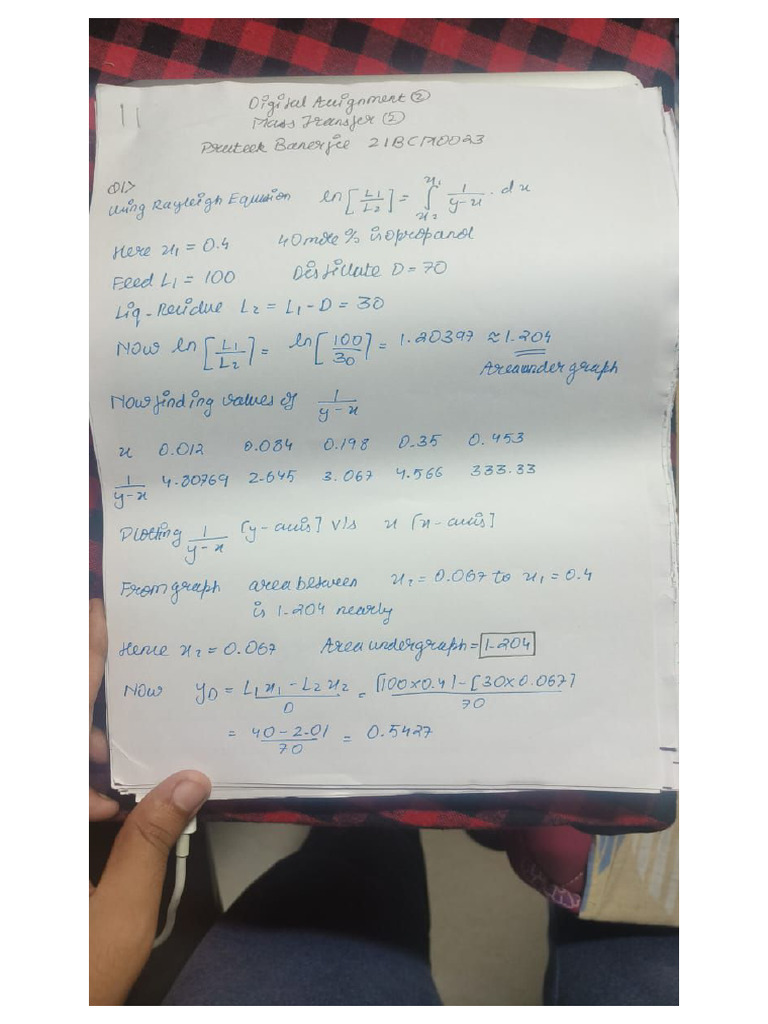 11
Digital Assignment ②
Mass Transfer (5)
Prateek Banerjee 21BCM0023
Q1>
Using Rayleigh Equation ln[L₁/L₂] = ∫ₓ₂ˣ¹ 1/(y-x) . dx
Here x₁ = 0.4 40 mole % isopropanol
Feed L₁ = 100 Distillate D = 70
Liq-Residue L₂ = L₁ - D = 30
Now ln[L₁/L₂] = ln[100/30] = 1.20397 ≈ 1.204
Area under graph
Now finding values of 1/(y-x)
x 0.012 0.084 0.198 0.35 0.453
1/(y-x) 4.80769 2.645 3.067 4.566 333.33
Plotting 1/(y-x) [y-axis] v/s x [x-axis]
From graph area between x₂ = 0.067 to x₁ = 0.4
is 1.204 nearly
Hence x₂ = 0.067 Area under graph = 1.204
Now y_D = (L₁x₁ - L₂x₂)/D = ([100×0.4] - [30×0.067])/70
= (40 - 2.01)/70 = 0.5427